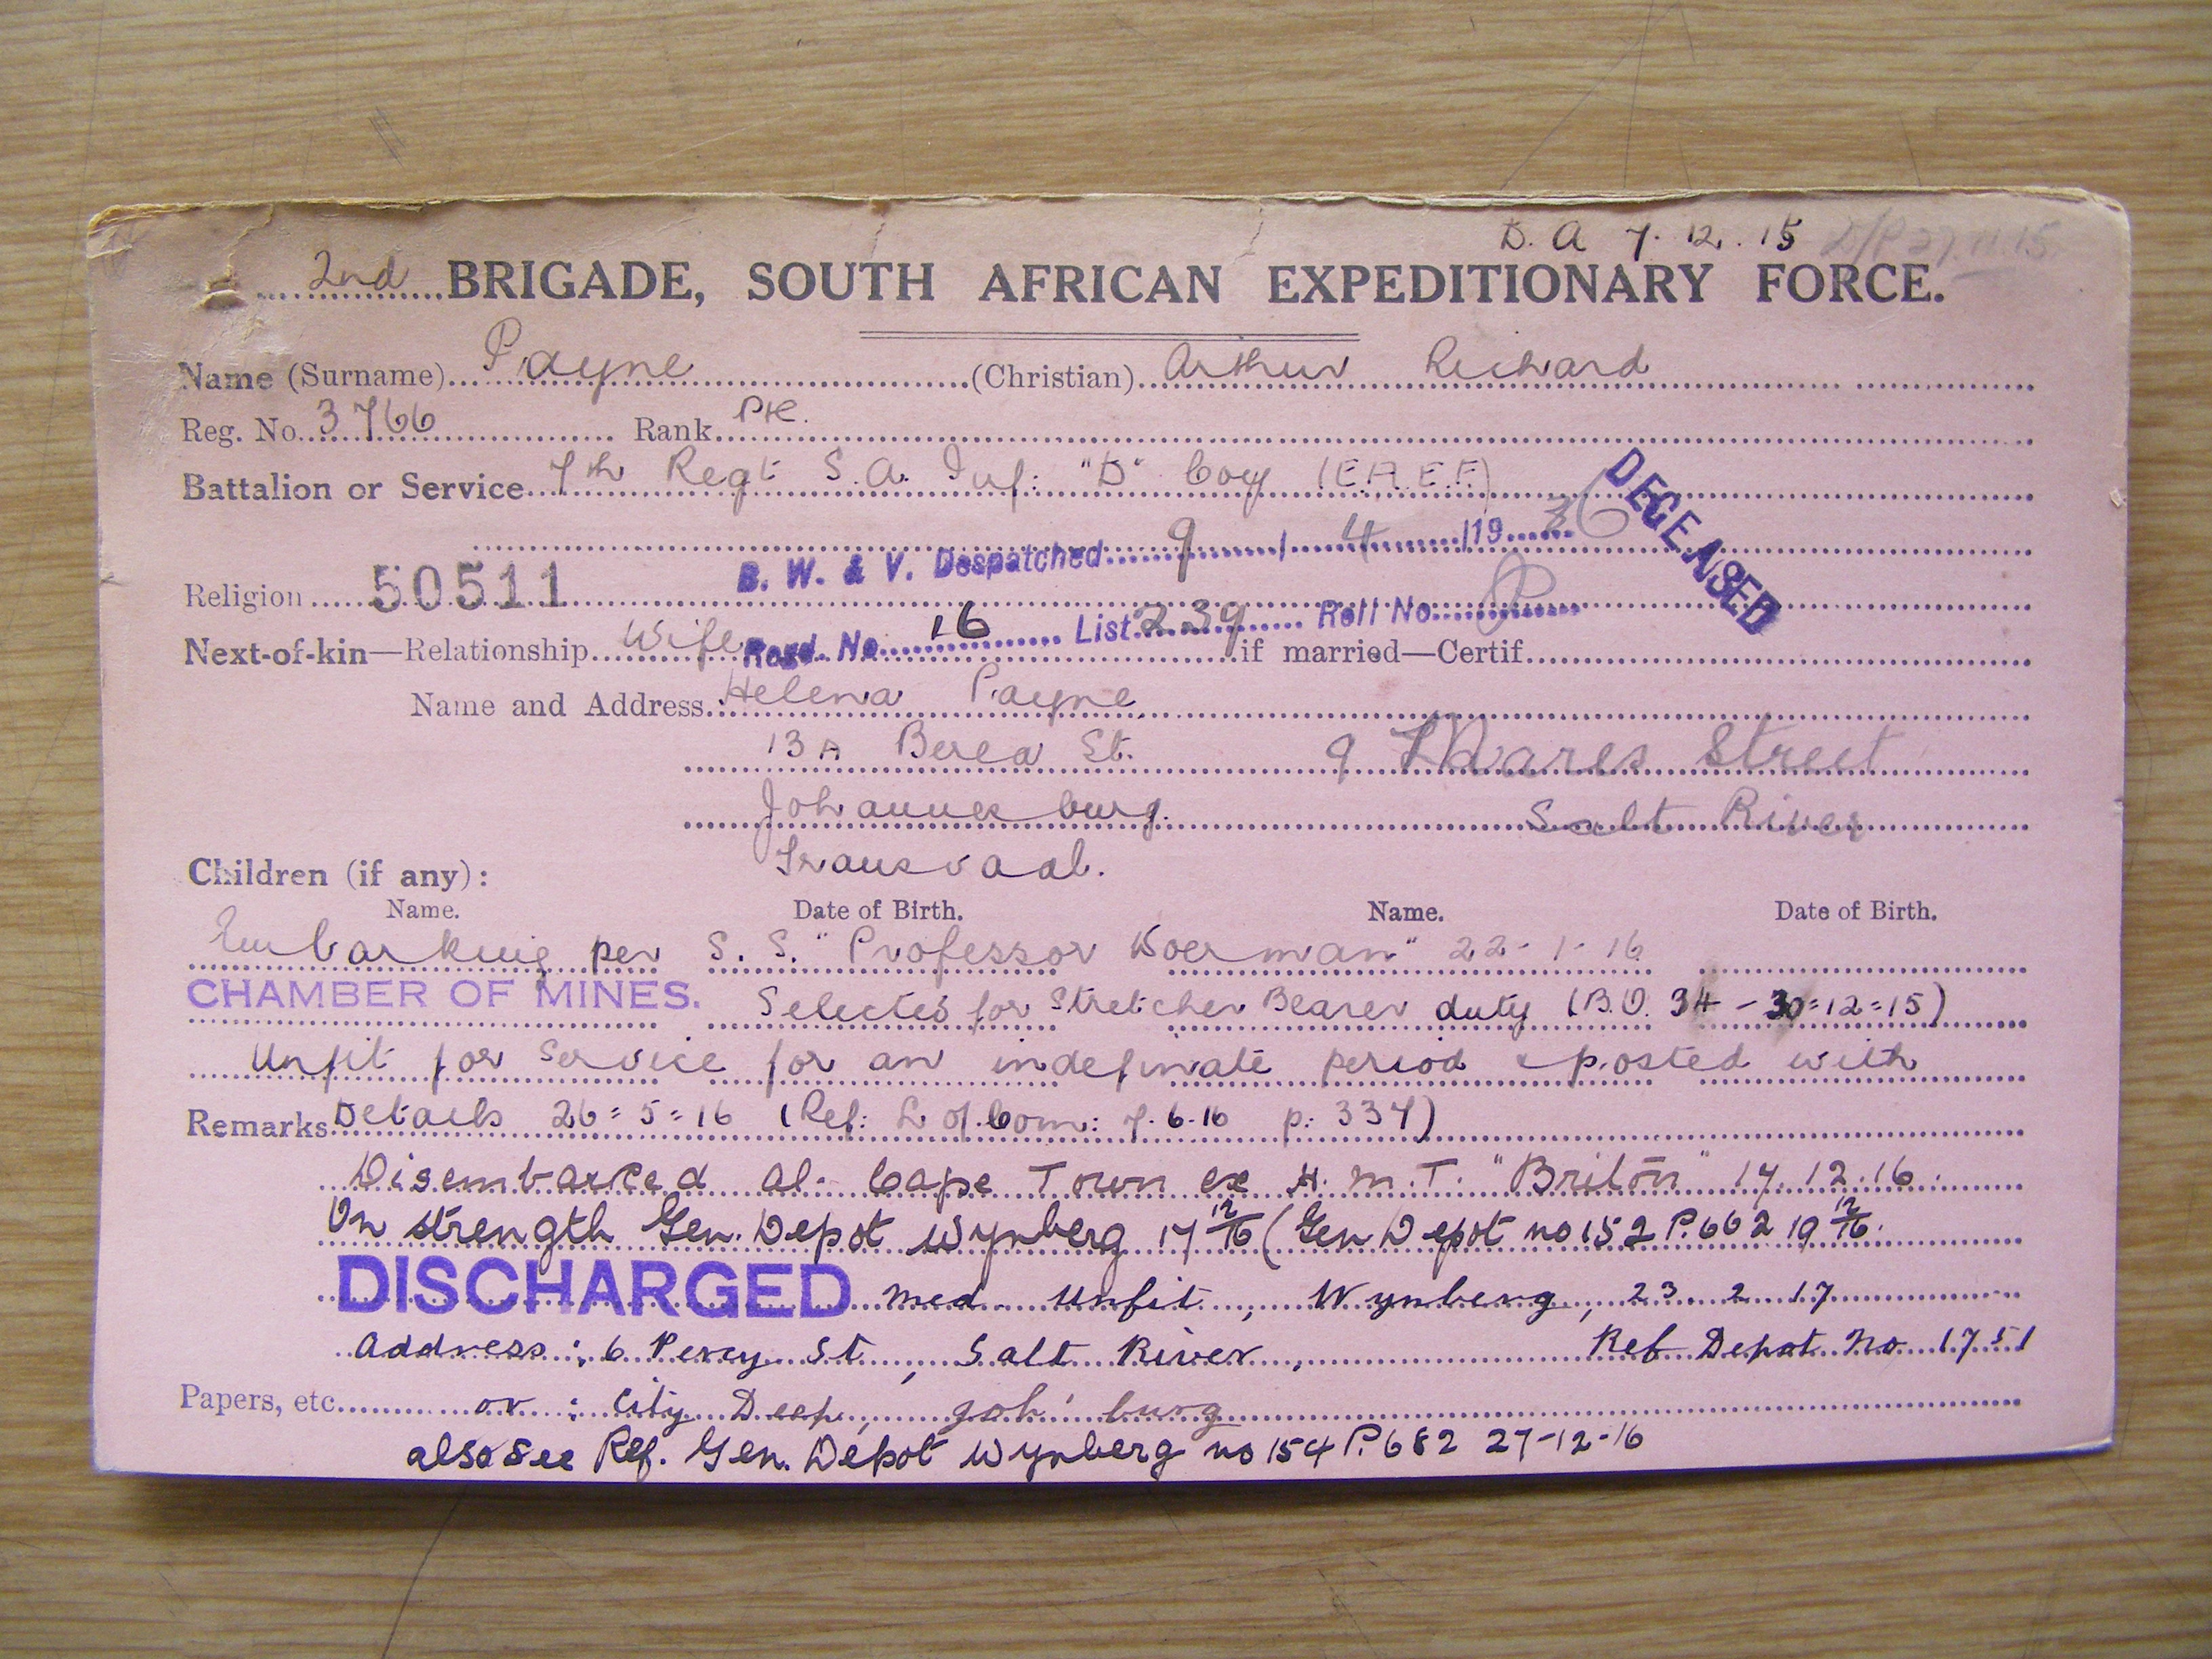 D. A 7. 12. 15
2nd BRIGADE, SOUTH AFRICAN EXPEDITIONARY FORCE.
Name (Surname) Payne (Christian) Arthur Richard
Reg. No. 3766 Rank Pte.
Battalion or Service 7th Regt S.A. Inf: "D" Coy (E.A.E.F)
DECEASED
B. W. & V. Despatched 9 / 4 /19
Religion 50511
Regd. No 16 List 239 Roll No. P
Next-of-kin—Relationship Wife if married—Certif.
Name and Address. Helena Payne
13A Berea St. 9 Street
Johannesburg. Salt River
Transvaal.
Children (if any):
Name. Date of Birth. Name. Date of Birth.
Embarking per S. S. "Professor Woerman" 22-1-16
CHAMBER OF MINES. Selected for Stretcher Bearer duty (B.O. 34 - 30=12=15)
Unfit for Service for an indefinate period & posted with
Remarks Details 26=5=16 (Ref: L of Com: 7.6.16 p: 337)
Disembarked at Cape Town ex H.M.T. "Briton" 17.12.16.
On strength Gen. Depot Wynberg 17 12/16 (Gen Depot no 152 P. 662 19 12/16.
DISCHARGED Med. Unfit, Wynberg, 23. 2. 17
Address: 6 Percy St, Salt River, Ref Depot No 1751
Papers, etc. or: City Deep, Joh'burg
also see Ref. Gen. Depot Wynberg no 154 P. 682 27-12-16